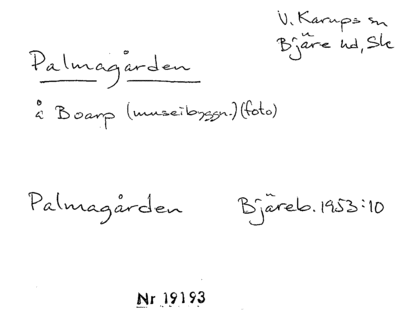 V. Karups sn
Bjäre hd, Sk
Palmagården
å Boarp (museibyggn.) (foto)
Palmagården Bjäreb. 1953:10
Nr 19193